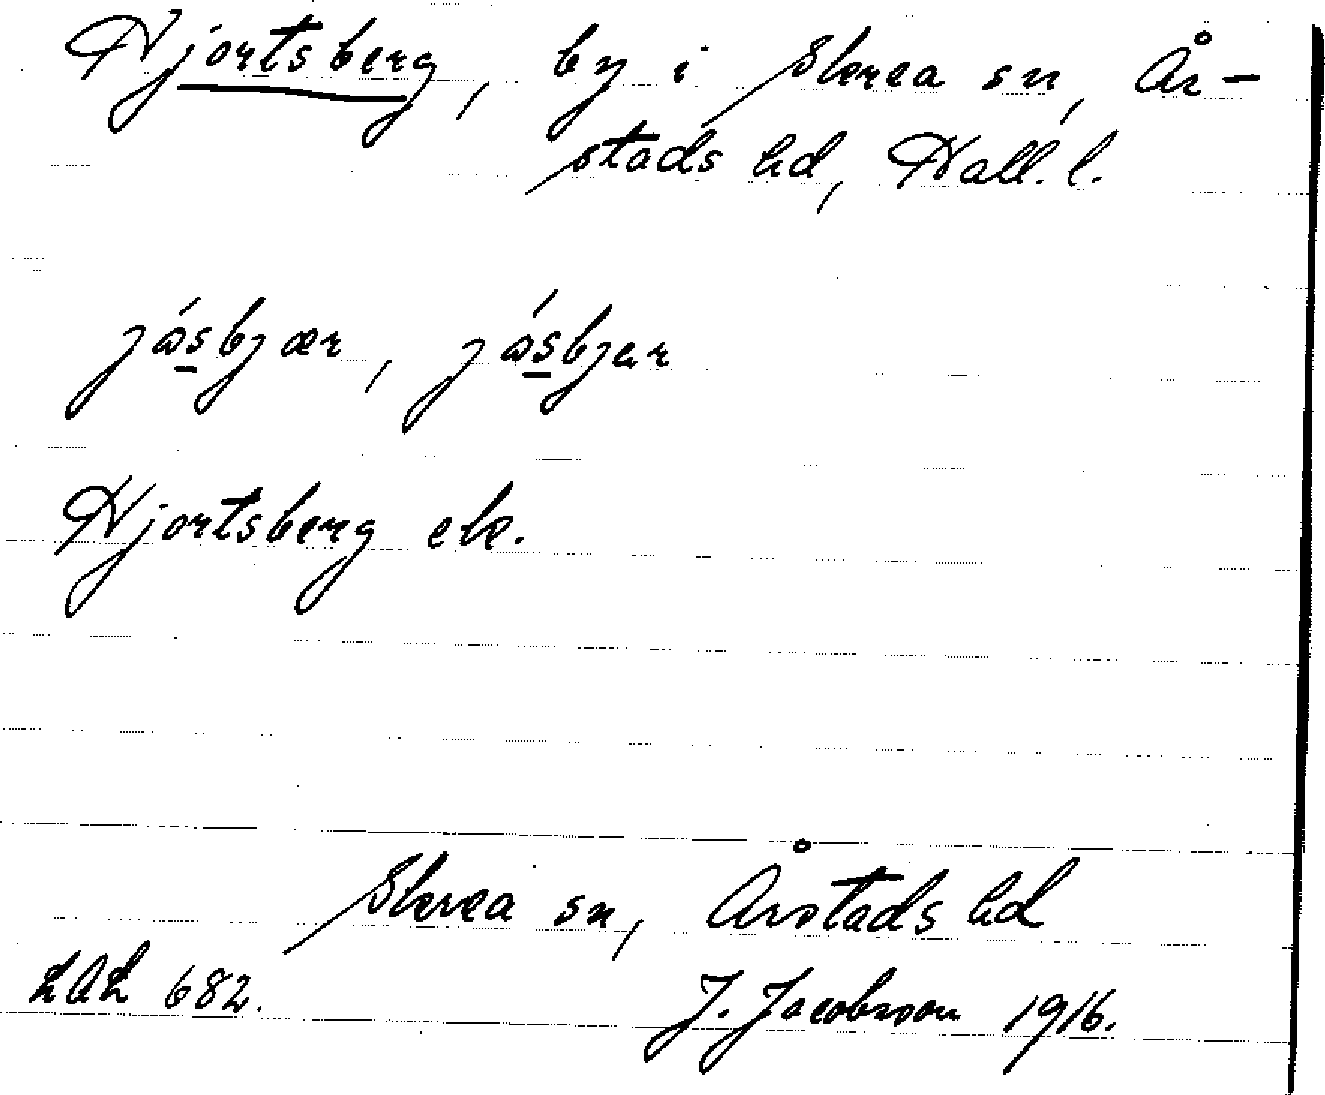 Hjortsberg, by i Skrea sn, År-
stads hd, Hall. l.
jásbjær, jásbjar
Hjortsberg ek.
Skrea sn, Årstads hd
LAL 682.
J. Jacobsson 1916.